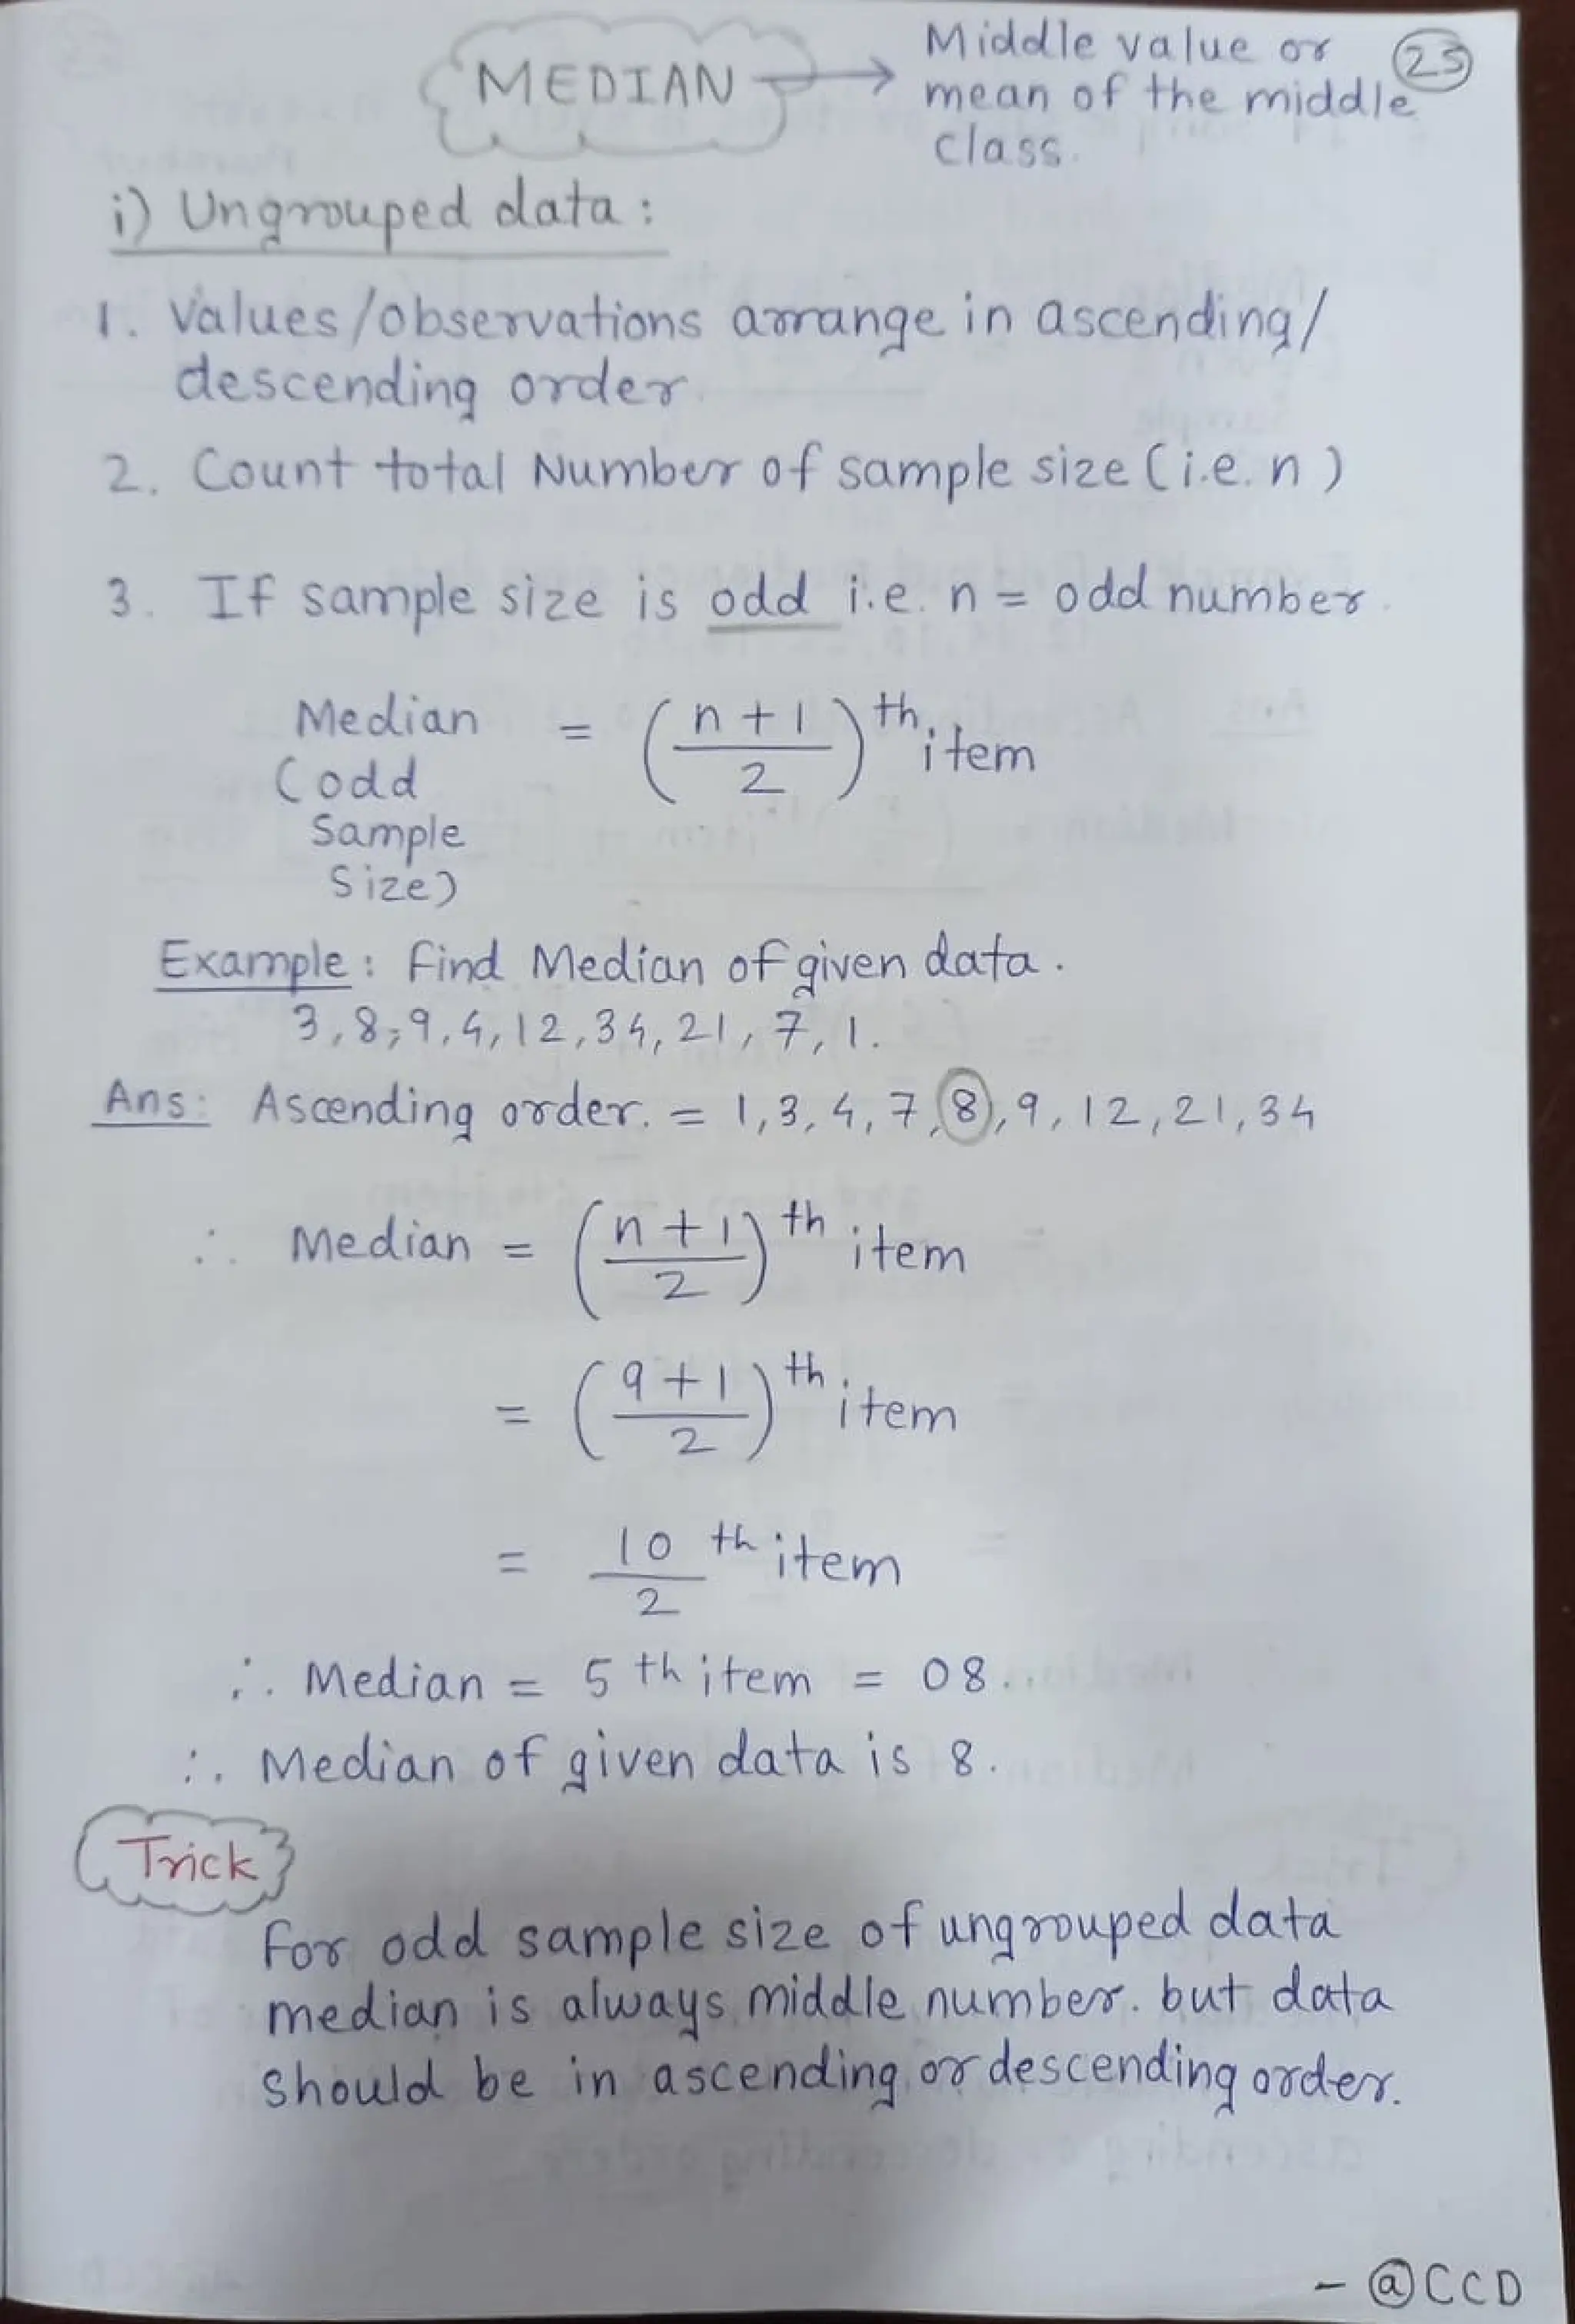 MEDIAN → Middle value or
mean of the middle
class.
25
i) Ungrouped data :
1. Values/observations arrange in ascending/
descending order
2. Count total Number of sample size (i.e. n)
3. If sample size is odd i.e. n = odd number.
Median (odd Sample Size) = (n + 1 / 2)th item
Example : Find Median of given data.
3, 8, 9, 4, 12, 34, 21, 7, 1.
Ans: Ascending order. = 1, 3, 4, 7, 8, 9, 12, 21, 34
∴ Median = (n + 1 / 2)th item
= (9 + 1 / 2)th item
= 10/2 th item
∴ Median = 5th item = 08.
∴ Median of given data is 8.
Trick
For odd sample size of ungrouped data
median is always middle number. but data
should be in ascending or descending order.
- @CCD